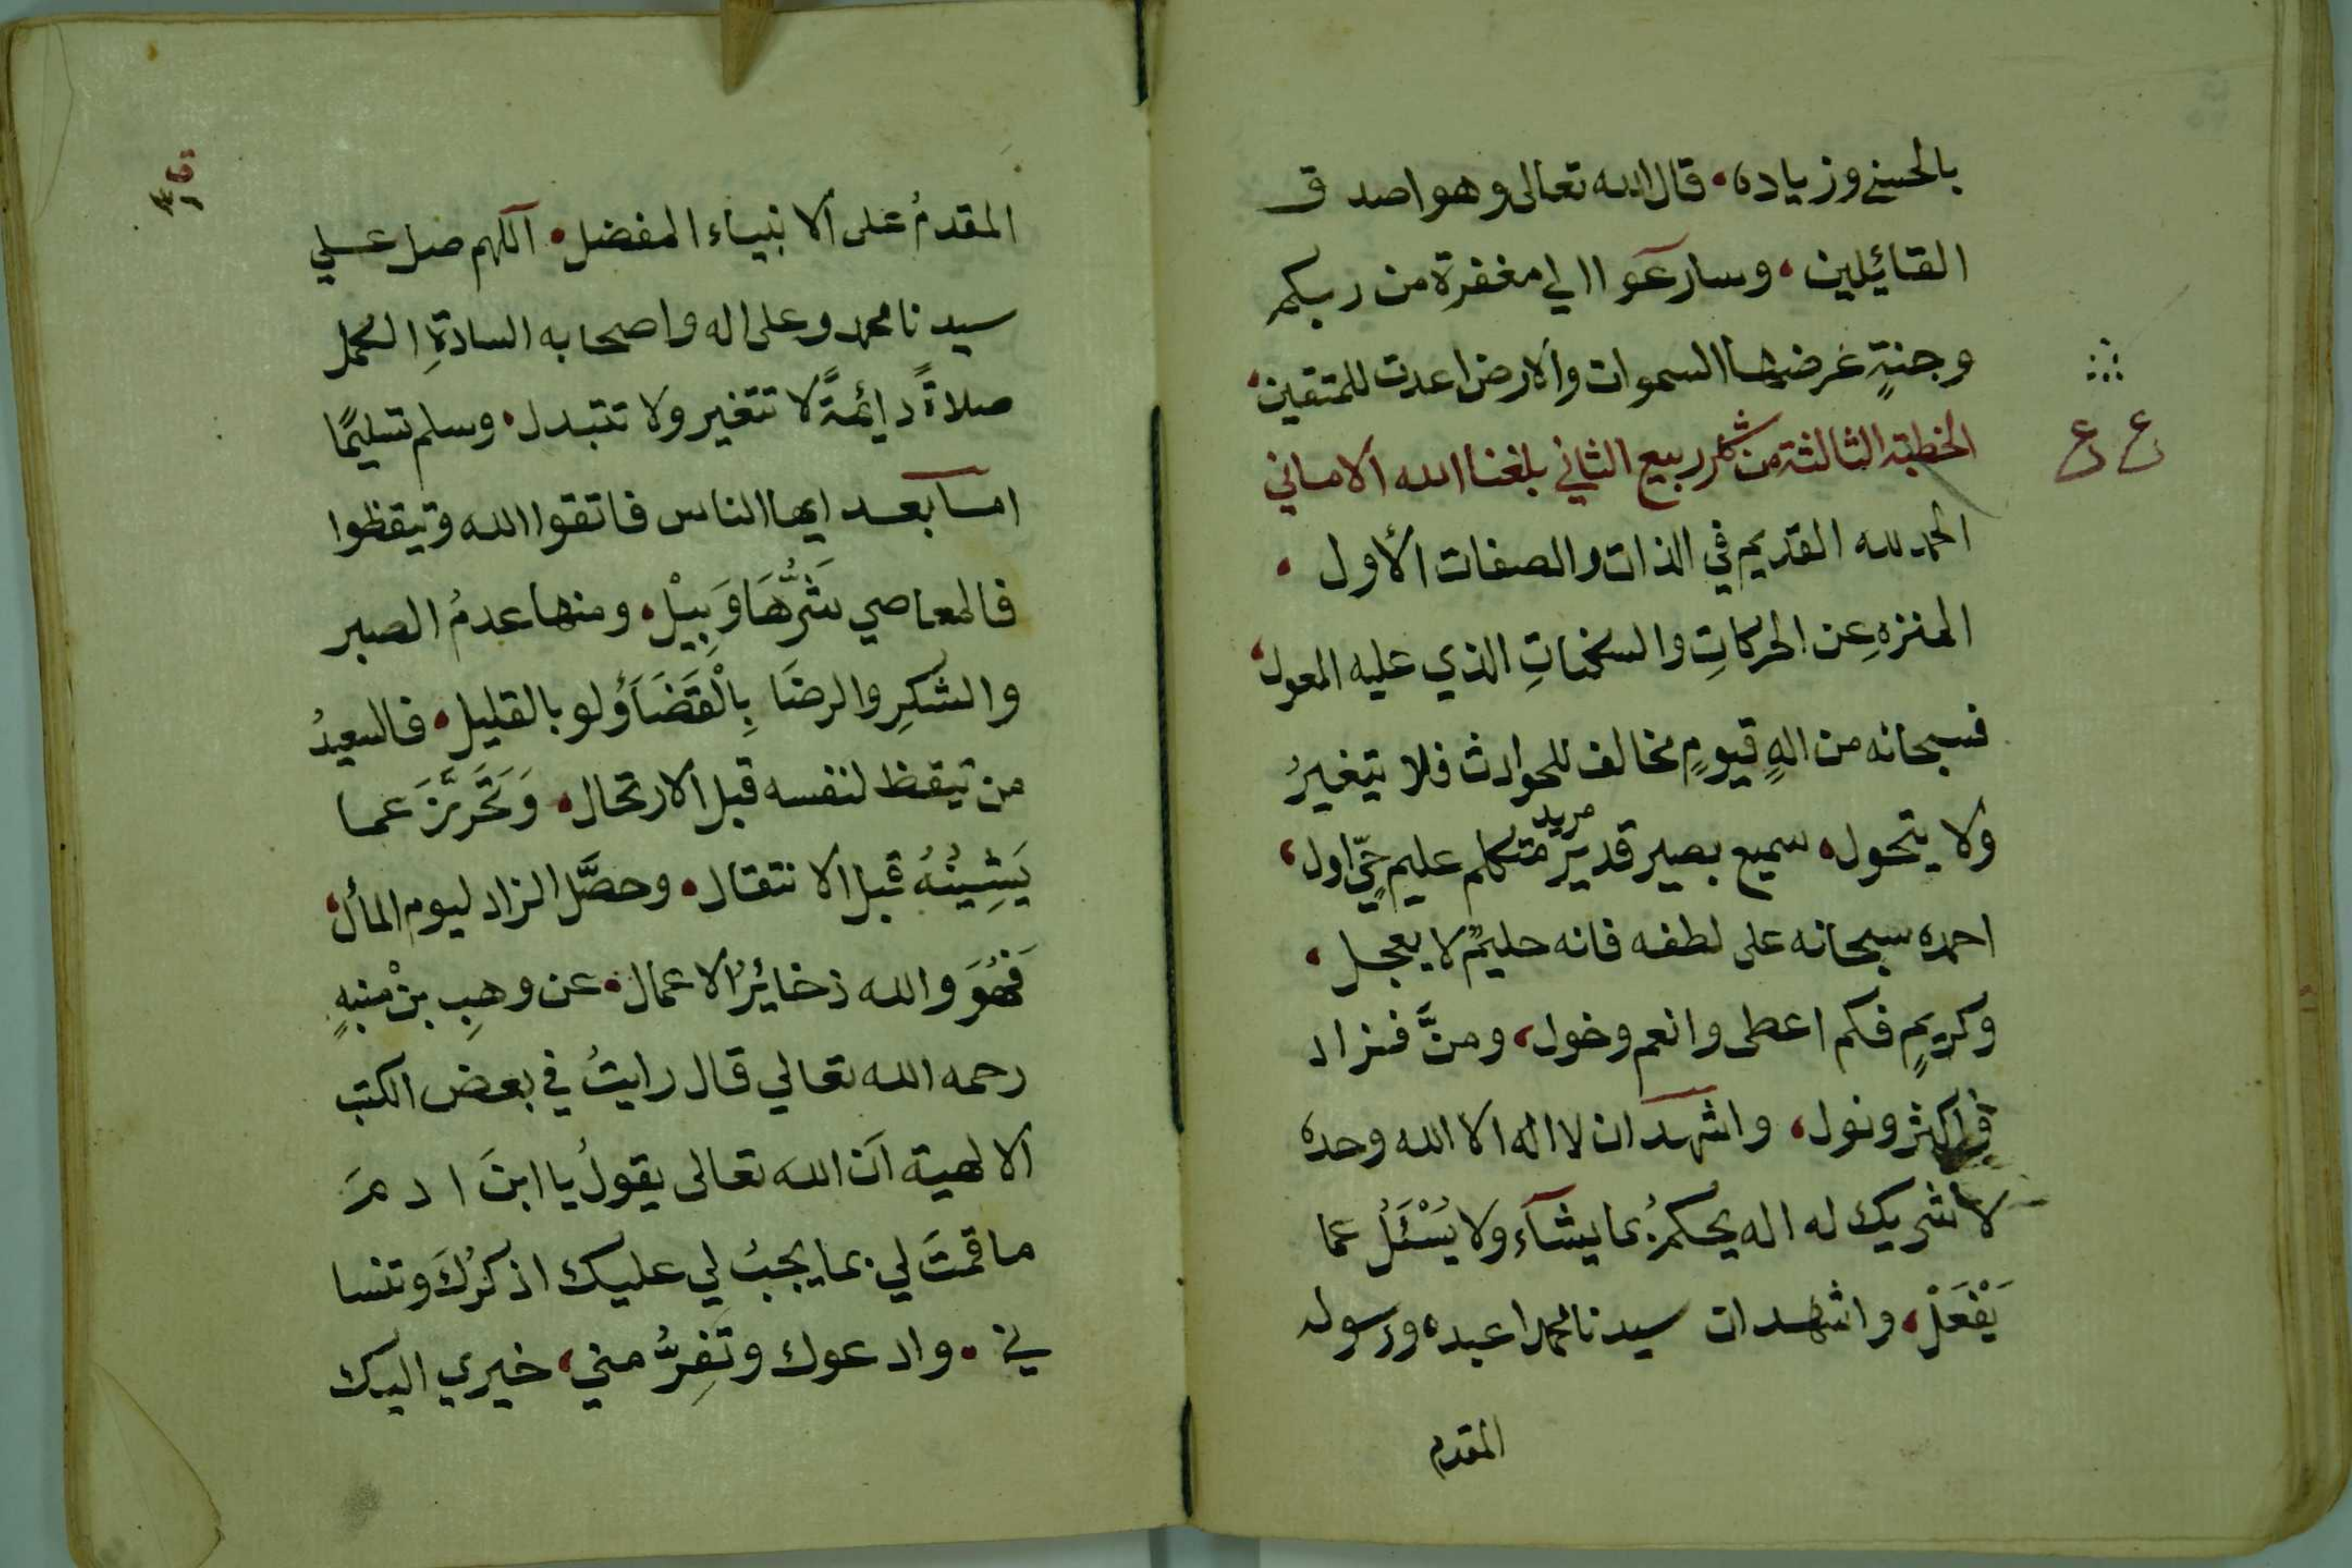 بالحسنى وزيادة، قال الله تعالى وهو اصدق
القائيلين، وسارعوا الي مغفرة من ربكم
وجنةٍ عرضها السموات والارض اعدت للمتقين،
الخطبة الثالثة من شهر ربيع الثاني بلغنا الله الاماني
ع ع
الحمد لله القديم في الذات والصفات الأول ،
المنزه عن الحركاتِ والسكناتِ الذي عليه المعول،
فسبحانه من الهٍ قيومٍ مخالف للحوادث فلا يتغيرُ
ولا يتحول، سميع بصير قدير مريد متكلم عليم حيٍّ اول،
احمده سبحانه على لطفه فانه حليمٌ لا يعجل ،
وكريمٍ فكم اعطى وانعم وخول، ومنَّ فزاد
فاكثر ونول، واشهد ان لا اله الا الله وحده
لا شريك له اله يحكمُ بما يشآء ولا يُسْئَلُ عما
يَفْعَلْ، واشهد ان سيدنا محمدا عبده ورسوله
المقدم
المقدمُ على الانبياء المفضل، اللهم صل علي
سيدنا محمد وعلى اله واصحابه السادةِ الكمل
صلاةً دائمةً لا تتغير ولا تتبدل، وسلم تسليمًا
اما بعد ايها الناس فاتقوا الله وتيقظوا
فالمعاصي شَرُّهَا وَبِيْلْ، ومنها عدمُ الصبر
والشكرِ والرضَا بِالْقَضَآءِ ولو بالقليل، فالسعيدُ
من تيقظ لنفسه قبل الارتحال، وَتَحَرَّزَ عما
يَشِيْنُهُ قبل الانتقال، وحصَّل الزاد ليوم المأل،
فَهُوَ والله ذخائرُ الاعمال، عن وهبِ بنْ منبهٍ
رحمه الله تعالي قال رايتُ في بعض الكتب
الالهية ان الله تعالى يقولُ يا ابنَ ادمَ
ما قمتَ لي بما يجبُ لي عليك اذكرُكَ وتنسا
ني ، وادعوك وتَفِرُّ مني، خيري اليك